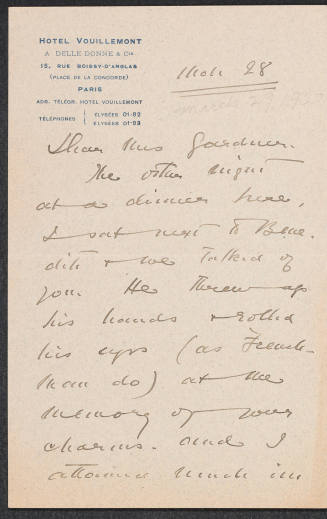 HOTEL VOUILLEMONT
A. DELLE DONNE & Cie
15, RUE BOISSY-D'ANGLAS
(PLACE DE LA CONCORDE)
PARIS
ADR. TÉLÉGR. HOTEL VOUILLEMONT
TÉLÉPHONES { ÉLYSÉES 01-82
ÉLYSÉES 01-83
Mch 28
Dear Mrs Gardner.
The other night
at a dinner here,
I sat next to Bene-
dite & we talked of
you. He threw up
his hands & rolled
his eyes (as French-
man do) at the
memory of your
charms. and I
attained much in